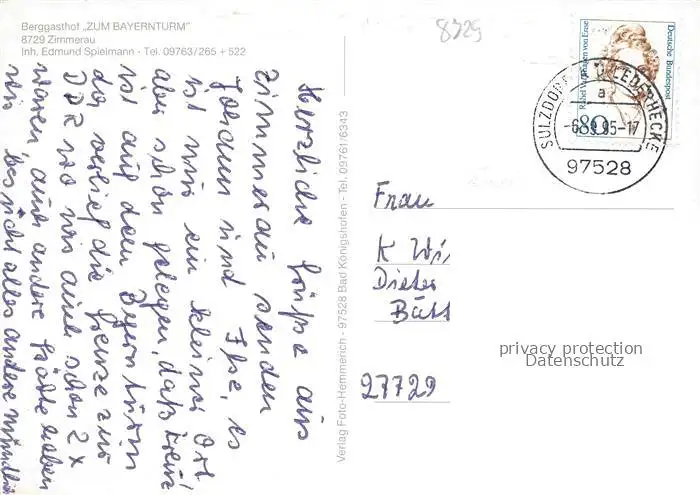 Berggasthof „ZUM BAYERNTURM"
8729 Zimmerau
Inh. Edmund Spielmann - Tel. 09763/265 + 522
8729
Deutsche Bundespost
Rahel Varnhagen von Ense
80
SULZDORF LEDERHECKE
a
-6.9.95-17
97528
Herzliche Grüße aus
Zimmerau senden
Johann und Ilse, es
ist nur ein kleiner Ort
aber schön gelegen, daß Kreuz
ist auf dem Bayernturm
da verlief die Grenze zur
DDR wo wir auch schon 2x
waren, auch andere Städte haben
wir besucht alles andere mündlich
Verlag Foto-Hemmerich - 97528 Bad Königshofen - Tel. 09761/6343
Frau
K Wi
Dieter
Bütt
27729
privacy protection
Datenschutz